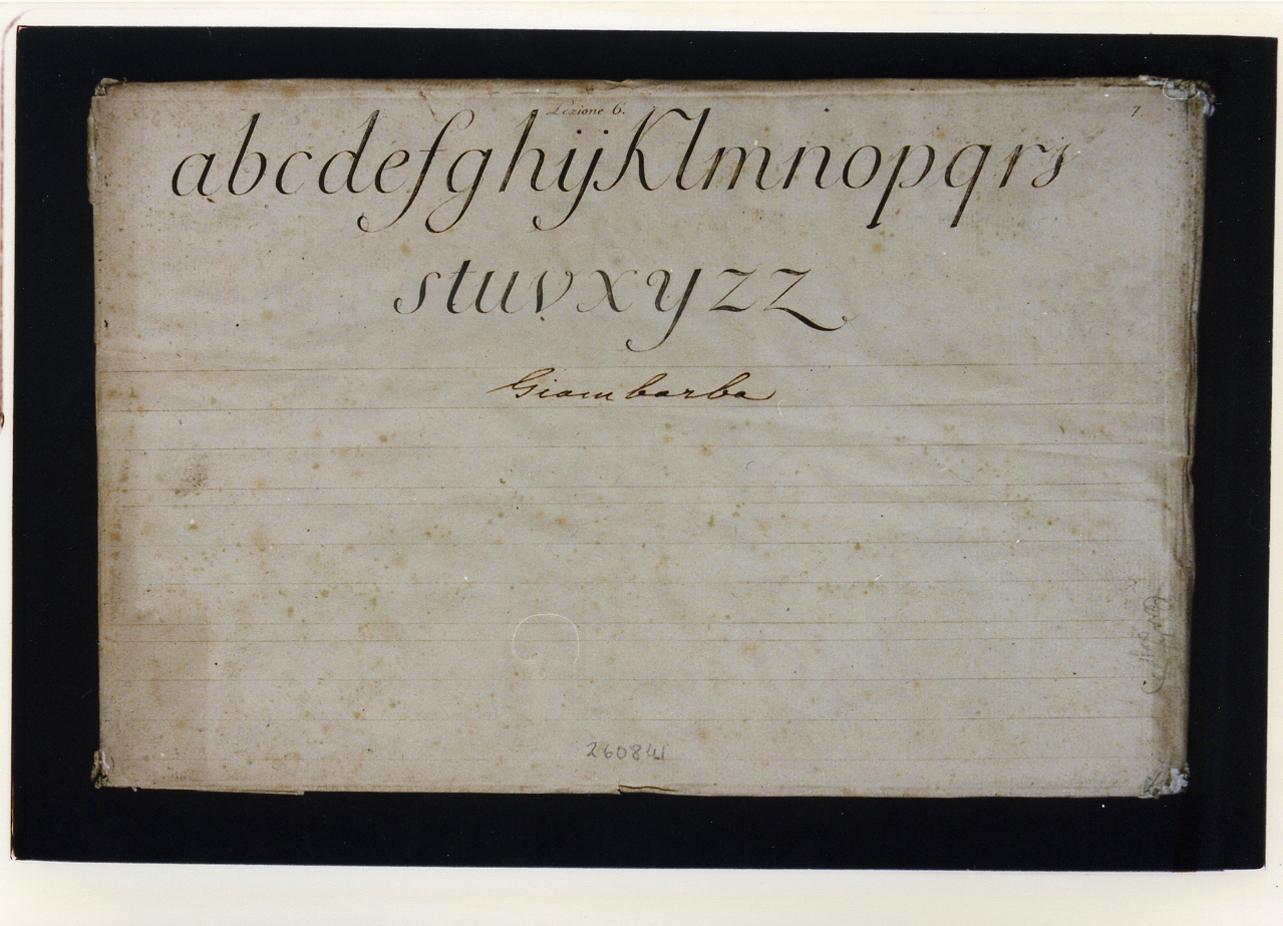 Lezione 6. 7
abcdefghijKlmnopqrs
stuvxyzz
Giambarba
260841